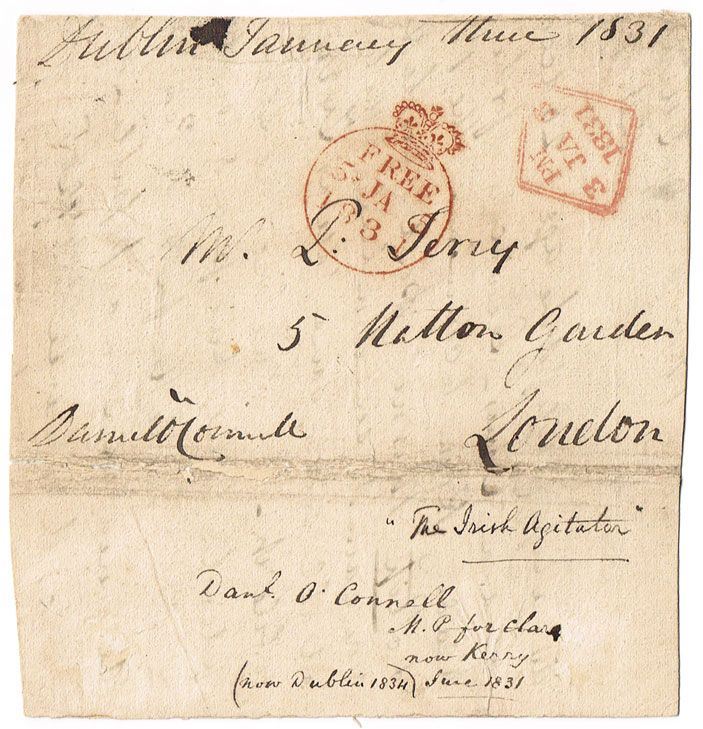 Dublin January three 1831
FREE
5 JA 5
1831
PM
JA 3
1831
3
Mr. P: Jerry
5 Hatton Garden
London
Daniel O'Connell
"The Irish Agitator"
Danl. O'Connell
M.P for Clare
now Kerry
(now Dublin 1834) June 1831